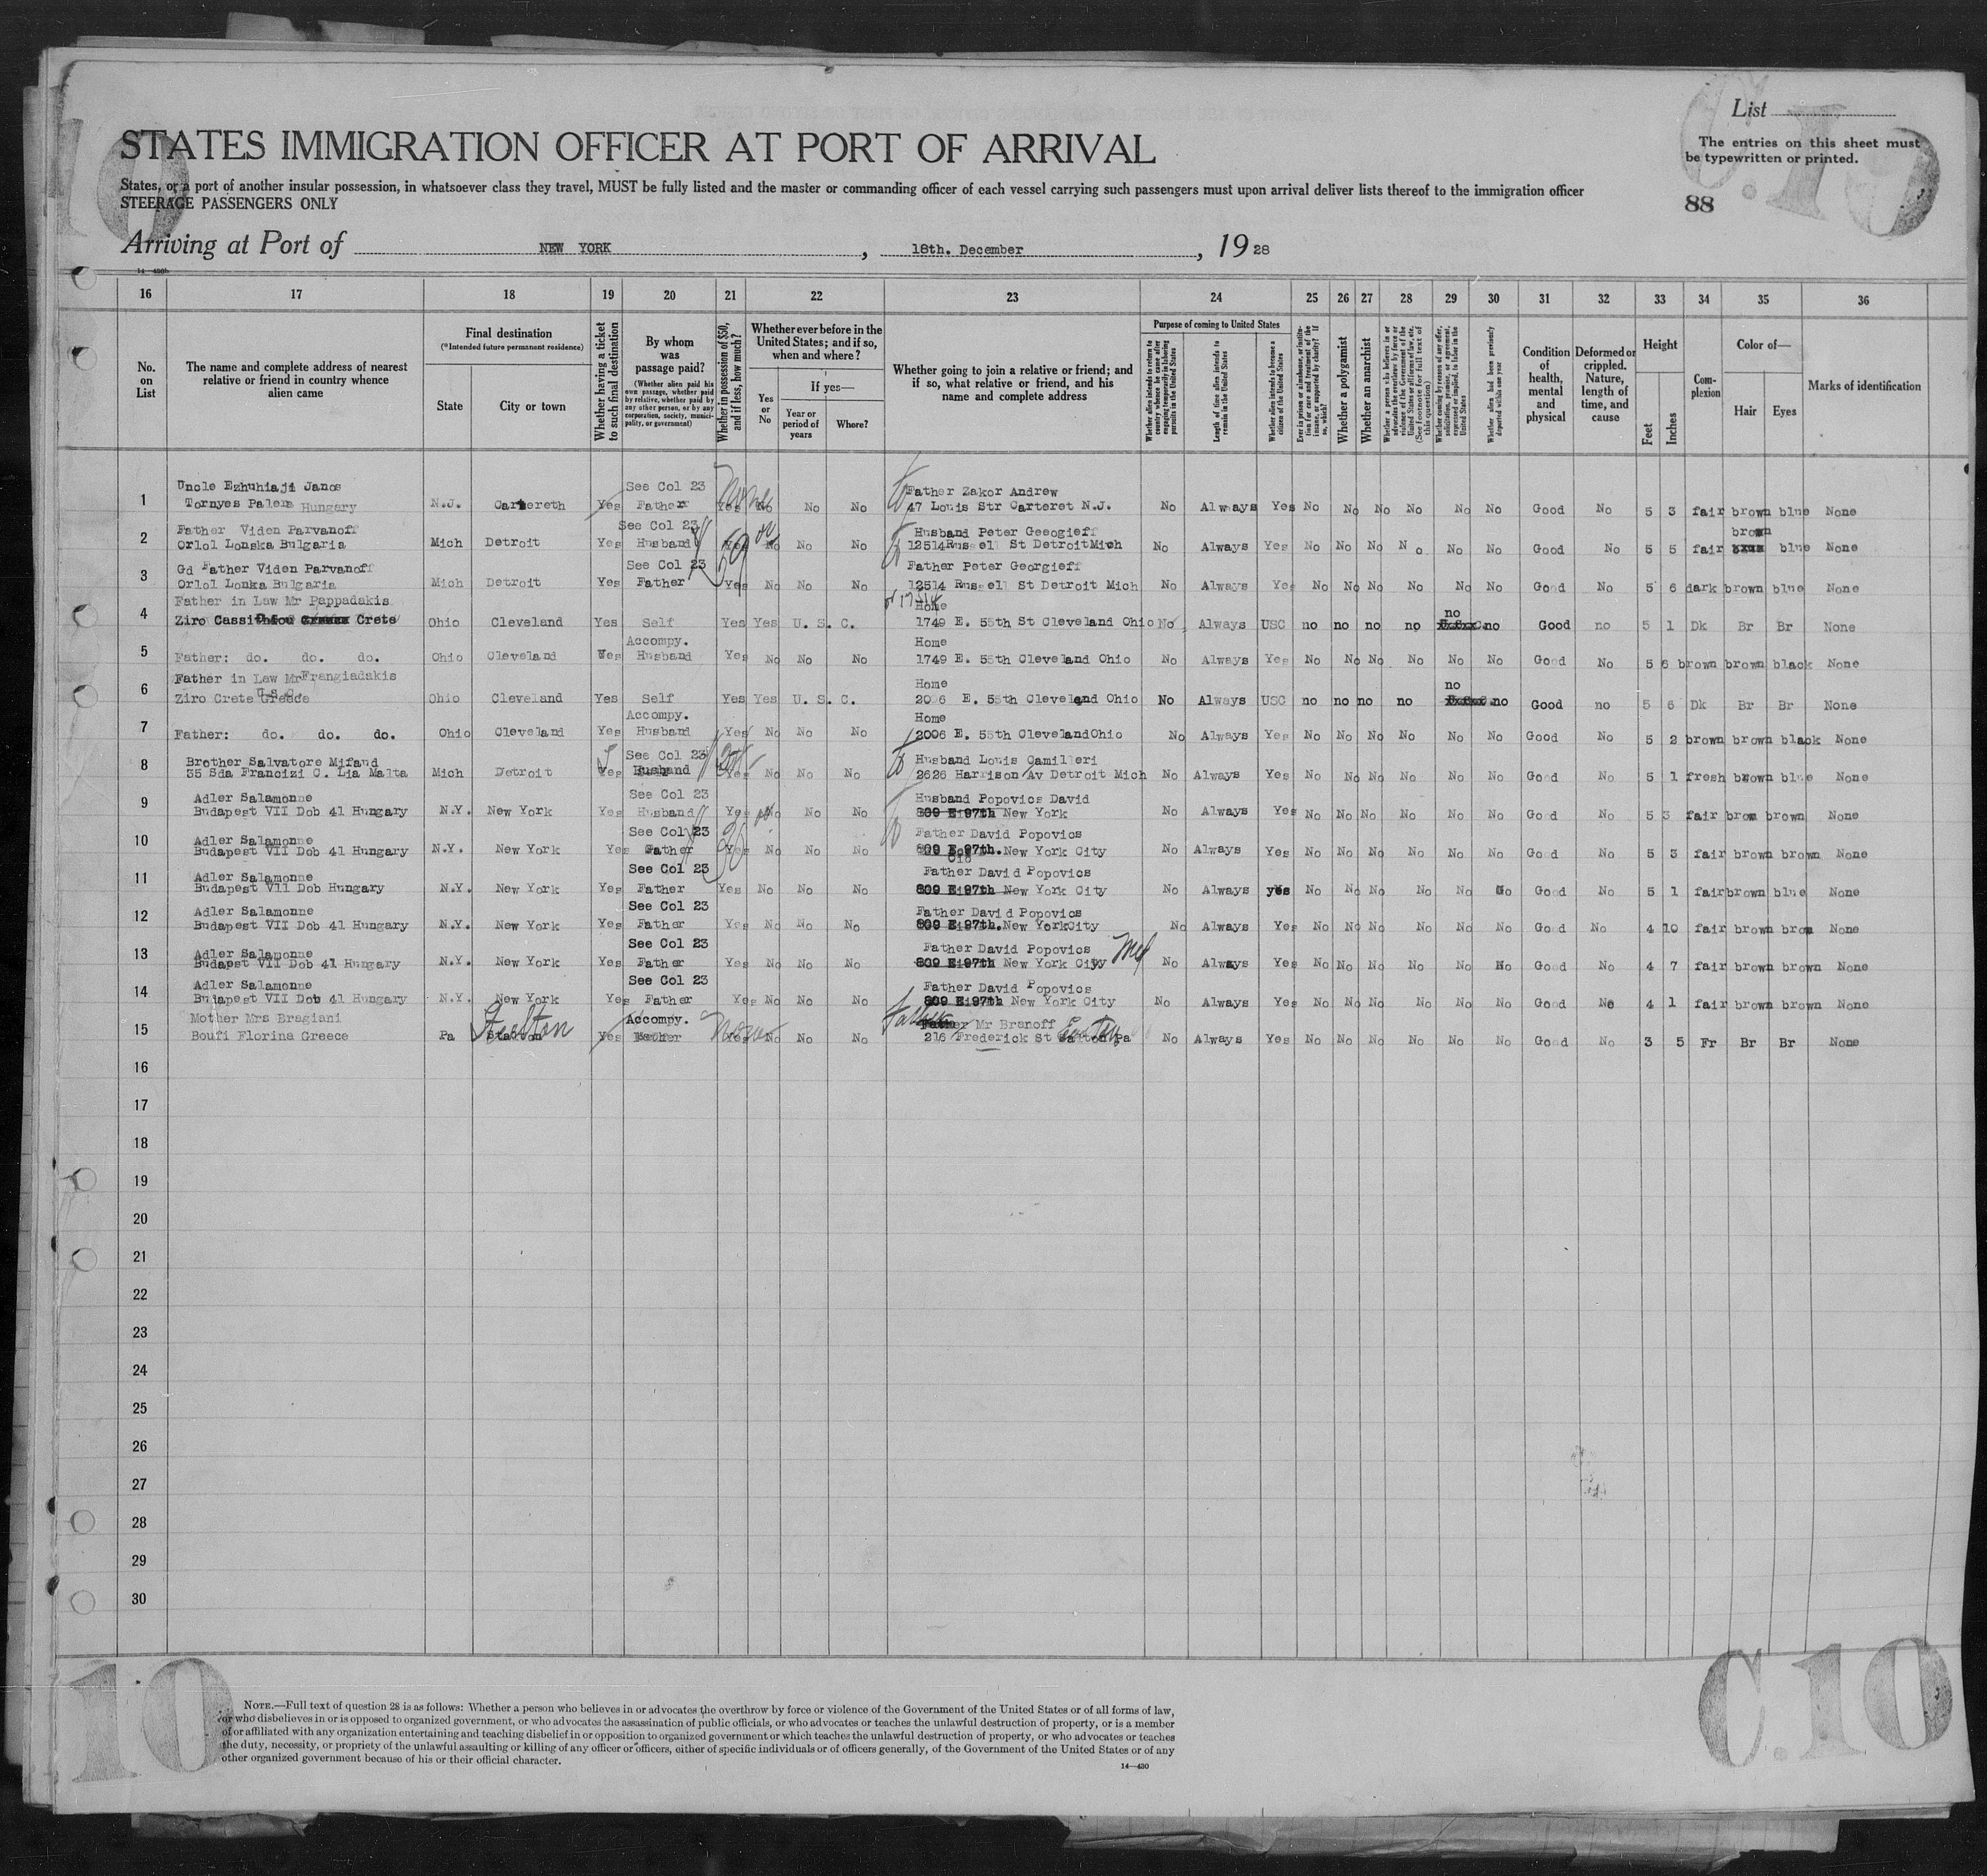 List
STATES IMMIGRATION OFFICER AT PORT OF ARRIVAL
The entries on this sheet must
be typewritten or printed.
States, or a port of another insular possession, in whatsoever class they travel, MUST be fully listed and the master or commanding officer of each vessel carrying such passengers must upon arrival deliver lists thereof to the immigration officer
STEERAGE PASSENGERS ONLY
88
Arriving at Port of NEW YORK, 18th. December, 1928
16 17 18 19 20 21 22 23 24 25 26 27 28 29 30 31 32 33 34 35 36
No. on List
The name and complete address of nearest relative or friend in country whence alien came
Final destination
(*Intended future permanent residence)
State
City or town
Whether having a ticket to such final destination
By whom was passage paid?
(Whether alien paid his own passage, whether paid by relative, whether paid by any other person, or by any corporation, society, municipality, or government)
Whether in possession of $50, and if less, how much?
Whether ever before in the United States; and if so, when and where?
Yes or No
If yes—
Year or period of years
Where?
Whether going to join a relative or friend; and if so, what relative or friend, and his name and complete address
Purpose of coming to United States
Whether alien intends to return to country whence he came after engaging temporarily in laboring pursuits in the United States
Length of time alien intends to remain in the United States
Whether alien intends to become a citizen of the United States
Ever in prison or almshouse, or institution for care and treatment of the insane, or supported by charity? If so, which?
Whether a polygamist
Whether an anarchist
Whether a person who believes in or advocates the overthrow by force or violence of the Government of the United States or all forms of law, etc. (See footnote for full text of this question)
Whether coming by reason of any offer, solicitation, promise, or agreement, expressed or implied, to labor in the United States
Whether alien had been previously deported within one year
Condition of health, mental and physical
Deformed or crippled. Nature, length of time, and cause
Height
Feet
Inches
Complexion
Color of—
Hair
Eyes
Marks of identification
1 Uncle Ezhuhiaji Janos See Col 23 None Father Zakor Andrew
Tornyos Palera Hungary N.J. Cartereth Yes Father Yes No No No 47 Louis Str Carteret N.J. No Always Yes No No No No No No Good No 5 3 fair brown blue None
2 Father Viden Parvanoff See Col 23 Husband Peter Geeogieff brown
Orlol Lonska Bulgaria Mich Detroit Yes Husband Yes No No No 12514 Russell St Detroit Mich No Always Yes No No No No No No Good No 5 5 fair blue None
3 Gd Father Viden Parvanoff See Col 23 Father Peter Georgieff
Orlol Lonka Bulgaria Mich Detroit Yes Father Yes No No No 12514 Russell St Detroit Mich No Always Yes No No No No No No Good No 5 6 dark brown blue None
4 Father in Law Mr Pappadakis Home no
Ziro Cassi Crete Ohio Cleveland Yes Self Yes Yes U. S. C. 1749 E. 55th St Cleveland Ohio No Always USC no no no no no Good no 5 1 Dk Br Br None
5 Accompy. Home
Father: do. do. do. Ohio Cleveland Yes Husband Yes No No No 1749 E. 55th Cleveland Ohio No Always Yes No No No No No No Good No 5 6 brown brown black None
6 Father in Law Mr Frangiadakis Home no
U.S.C.
Ziro Crete Greece Ohio Cleveland Yes Self Yes Yes U. S. C. 2006 E. 55th Cleveland Ohio No Always USC no no no no no Good no 5 6 Dk Br Br None
7 Accompy. Home
Father: do. do. do. Ohio Cleveland Yes Husband Yes No No No 2006 E. 55th Cleveland Ohio No Always Yes No No No No No No Good No 5 2 brown brown black None
8 Brother Salvatore Mifsud See Col 23 Husband Louis Camilleri
35 Sda Francizi C. Lia Malta Mich Detroit Yes Husband Yes No No No 2626 Harrison Av Detroit Mich No Always Yes No No No No No No Good No 5 1 fresh brown blue None
9 Adler Salamonne See Col 23 Husband Popovics David
Budapest VII Dob 41 Hungary N.Y. New York Yes Husband Yes No No No 309 E 97th New York No Always Yes No No No No No No Good No 5 3 fair brow brown None
10 Adler Salamonne See Col 23 Father David Popovics
Budapest VII Dob 41 Hungary N.Y. New York Yes Father Yes No No No 309 E 97th. New York City No Always Yes No No No No No No Good No 5 3 fair brown brown None
11 Adler Salamonne See Col 23 Father David Popovics
Budapest V11 Dob Hungary N.Y. New York Yes Father Yes No No No 309 E 97th New York City No Always yes No No No No No No Good No 5 1 fair brown blue None
12 Adler Salamonne See Col 23 Father David Popovics
Budapest VII Dob 41 Hungary N.Y. New York Yes Father Yes No No No 309 E 97th. New York City No Always Yes No No No No No No Good No 4 10 fair brown brow None
13 Adler Salamonne See Col 23 Father David Popovics
Budapest VII Dob 41 Hungary N.Y. New York Yes Father Yes No No No 309 E 97th New York City No Always Yes No No No No No No Good No 4 7 fair brown brown None
14 Adler Salamonne See Col 23 Father David Popovics
Budapest VII Dob 41 Hungary N.Y. New York Yes Father Yes No No No 309 E 97th New York City No Always Yes No No No No No No Good No 4 1 fair brown brown None
15 Mother Mrs Bragiani Steelton Accompy. None Father Mr Branoff
Boufi Florina Greece Pa Yes Yes No No No 216 Frederick St Pa No Always Yes No No No No No No Good No 3 5 Fr Br Br None
16
17
18
19
20
21
22
23
24
25
26
27
28
29
30
10
C.10
NOTE.—Full text of question 28 is as follows: Whether a person who believes in or advocates the overthrow by force or violence of the Government of the United States or of all forms of law,
or who disbelieves in or is opposed to organized government, or who advocates the assassination of public officials, or who advocates or teaches the unlawful destruction of property, or is a member
of or affiliated with any organization entertaining and teaching disbelief in or opposition to organized government or which teaches the unlawful destruction of property, or who advocates or teaches
the duty, necessity, or propriety of the unlawful assaulting or killing of any officer or officers, either of specific individuals or of officers generally, of the Government of the United States or of any
other organized government because of his or their official character.
14—430